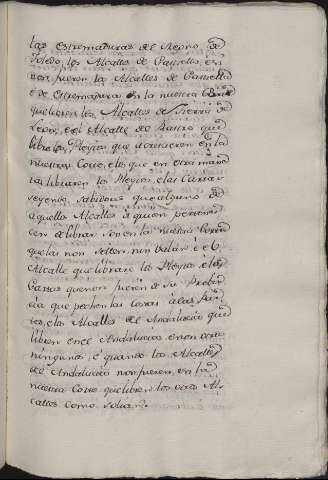 las estremaduras del Reyno de
Toledo los Alcalles de Castiella, en
non fueren los Alcalles de Castiella
e de Estremadura en la nuestra Corte
que libren los Alcalles de tierra de
Leon, e el Alcalle del Rastro que
libre los Pleytos que acaecieren en la
nuestra Corte, e los que en otra manera
libraren los Pleytos, e las Cartas
seyendo sabidores que alguno de
aquellos Alcalles a quien pertenes-
cen de librar son en la nuestra Corte
que las non sellen nin valan: e el
Alcalle que librare los Pleytos e las
Cartas que non fueren de su Provin-
cia que pechen las costas a las Par-
tes, e los Alcalles del Andalucia que
libren en el Andalucia e non otro
ninguno: e quando los Alcalles
del Andalucia non fueren en la
nuestra Corte que libren los otros Al-
calles como solian.